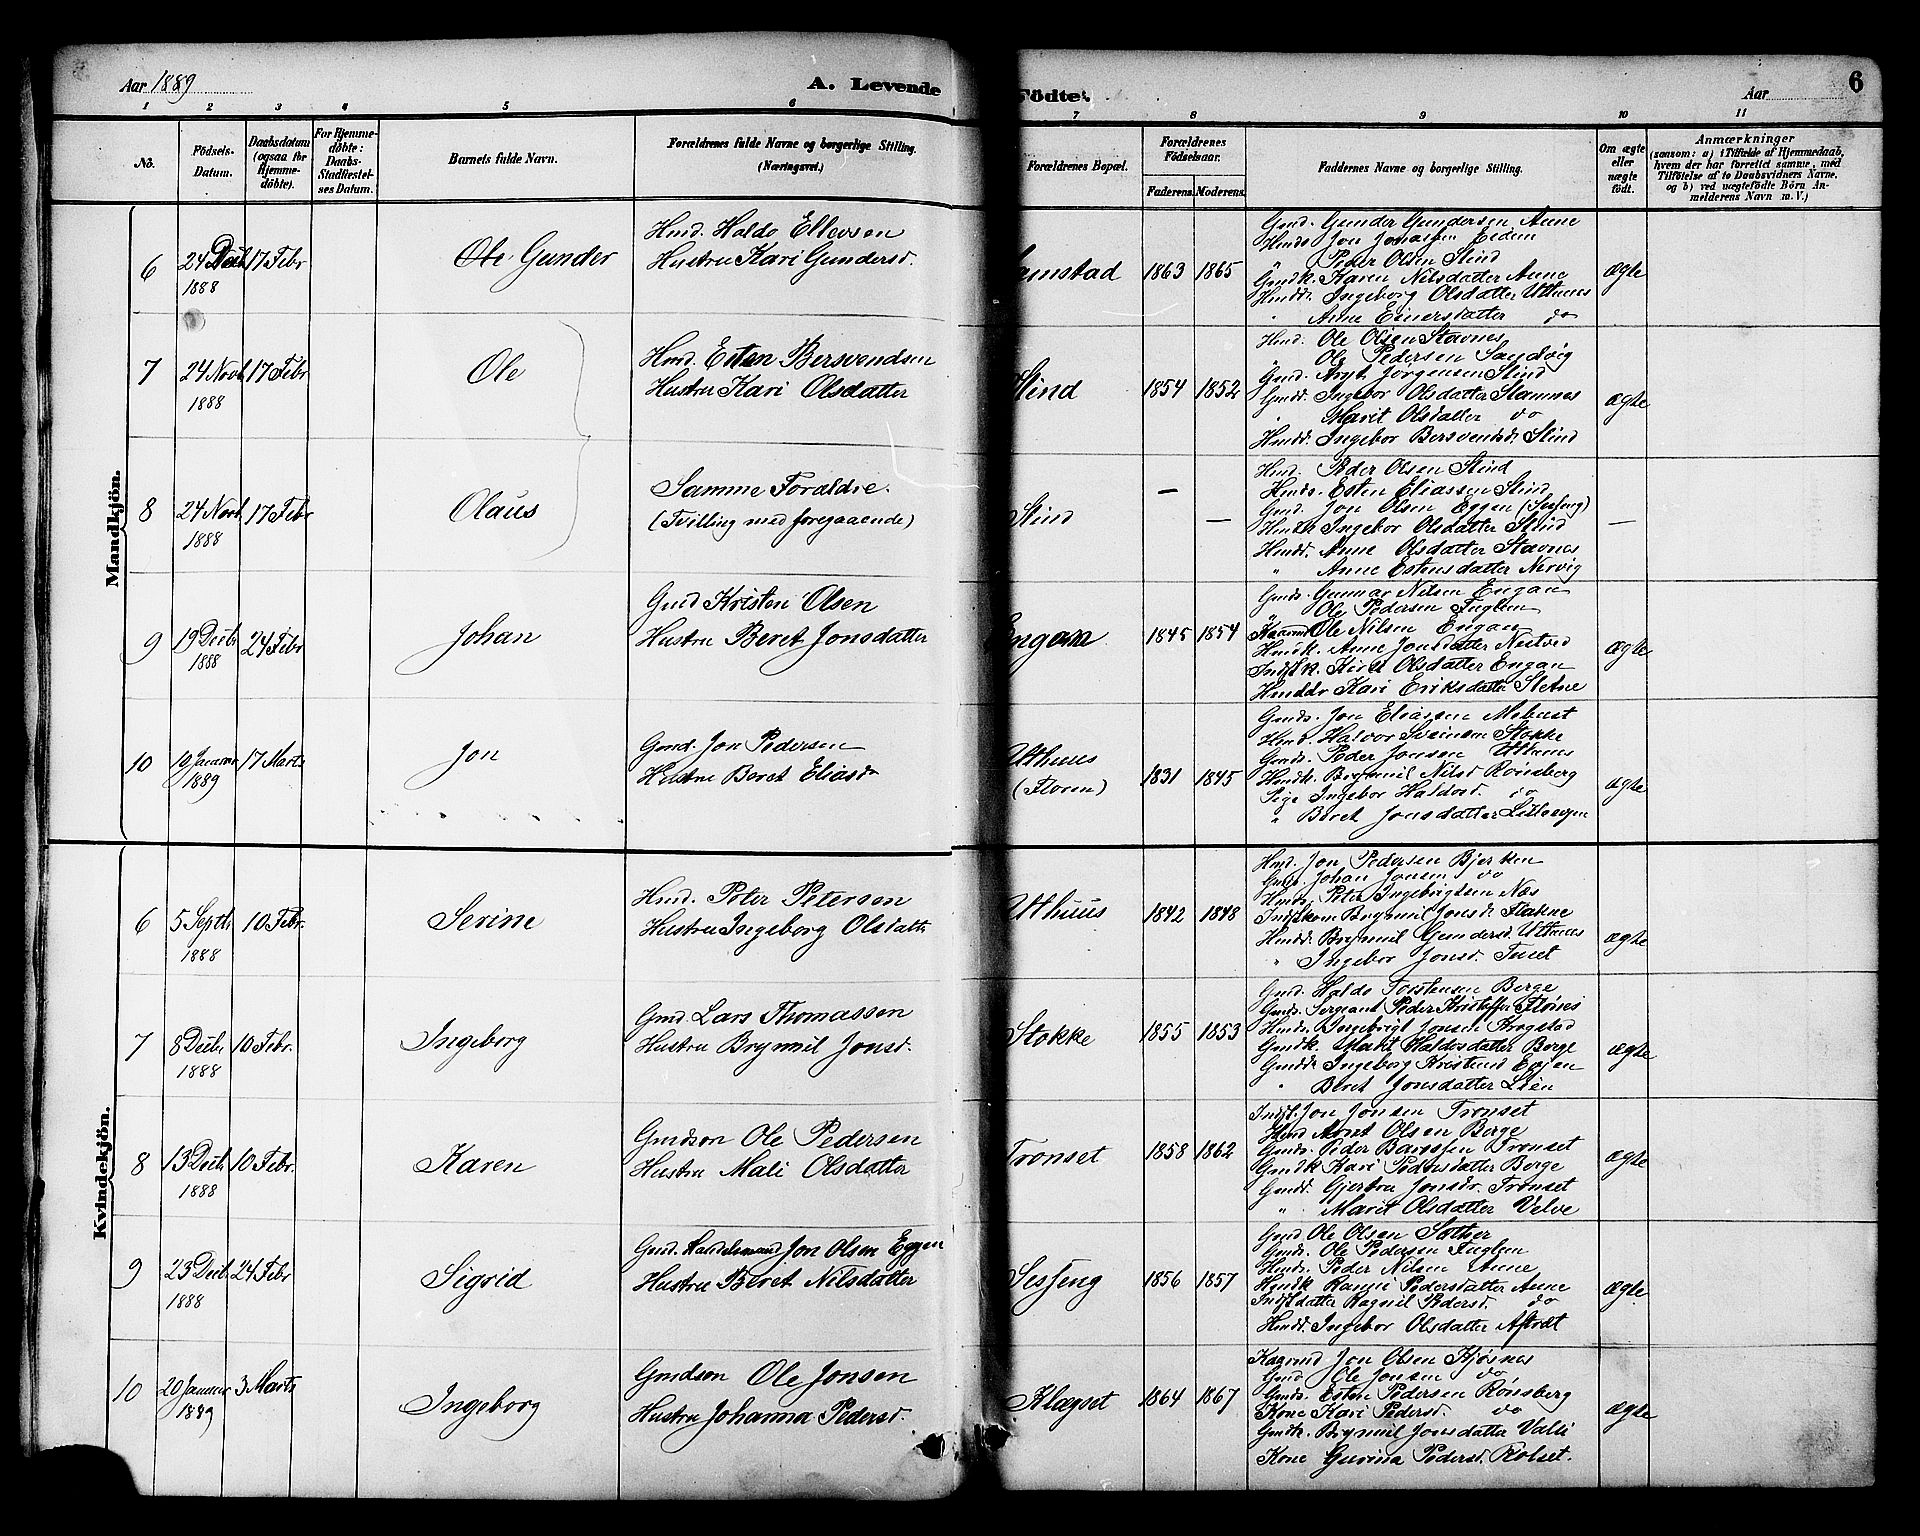 Aar 1889
A. Levende
Födte.
Aar
6
1 2 3 4 5 6 7 8 9 10 11
No.
Födsels-Datum.
Daabsdatum (ogsaa for Hjemme-döbte).
For Hjemme-döbte: Daabs-Stadfæstel-ses Datum.
Barnets fulde Navn.
Forældrenes fulde Navne og borgerlige Stilling.
(Næringsvei.)
Forældrenes Bopæl.
Forældrenes Födselsaar.
Faderens. Moderens.
Faddernes Navne og borgerlige Stilling.
Om ægte eller uægte födt.
Anmærkninger
(saasom: a) i Tilfælde af Hjemmedaab,
hvem der har forrettet samme, med
Tilföielse af to Daabsvidners Navne,
og b) ved uægtefödte Börn An-
melderens Navn m. V.)
Mandkjön.
6
24 Decbr 1888
17 Febr
Ole Gunder
Hmd. Haldo Ellevsen
Hustru Kari Gundersd.
1863
1865
Gmd. Gunder Gundersen Aune
Hmds. Jon Jonassen Eidem
" Peder Olsen Slind
Gmdk. Karen Nilsdatter Aune
Hmdd. Ingeborg Olsdatter Uthuus
" Anne Einersdatter do
ægte
7
24 Novb. 1888
17 Febr
Ole
Hmd. Esten Bersvendsen
Hustru Kari Olsdatter
Slind
1854
1852
Hmd. Ole Olsen Stavnes
" Ole Pedersen Sandvig
Gmd. Arnt Jörgensen Slind
Gmdd. Ingebor Olsdatter Stamnes
" Marit Olsdatter do
Hmdd. Ingebor Bersvendsd. Slind
ægte
8
24 Novb. 1888
17 Febr
Olaus
Samme Forældre.
(Tvilling med foregaaende)
Slind
—
—
Hmd. Peder Olsen Slind
Hmds. Esten Eliassen Slind
Gmd. Jon Olsen Eggen (Sesseng)
Hmdk Ingebor Olsdatter Slind
Hmdd. Anne Olsdatter Stavnes
" Anne Estensdatter Nervig
—
9
19 Decbr 1888
24 Febr
Johan
Gmd Kristen Olsen
Hustru Beret Jonsdatter
Engan
1845
1854
Gmds. Gunnar Nilsen Engan
" Ole Pedersen Fuglem
Kaarmd Ole Nilsen Engan
Hmdk. Anne Jonsdatter Nestved
Indstk. Kirsti Olsdatter Engan
Hmddr Kari Eriksdatter Stetne
ægte
10
10 Januar 1889
17 Marts
Jon
Gmd. Jon Pedersen
Hustru Beret Eliasdr
Uthuus
(Floren)
1831
1845
Gmds. Jon Eliassen Mebust
Hmd. Halvor Sveinsen Stokke
Gmds. Peder Jonsen Uthuus
Hmdk. Brynnil Nilsd Rönsberg
Pige Ingebor Haldosd. do
" Beret Jonsdatter
ægte
Kvindekjön.
6
5 Septbr 1888
10 Febr.
Serine
Hmd. Peter Petersen
Hustru Ingeborg Olsdattr
Uthuus
1842
1848
Hmd. Jon Pedersen Bjerken
Gmds. Johan Jonsen do
Hmds. Peter Ingebrigtsen Næs
Indstkone Brynnil Jonsdr Flakne
Hmdd. Brynnil Gundersd. Uthuus
" Ingebor Jonsd. Tuset
ægte
7
8 Decbr 1888
10 Febr.
Ingeborg
Gmd. Lars Thomassen
Hustru Brynnil Jonsd.
Stokke
1855
1853
Gmd. Haldo Torstensen Berge
Gmds. Sergeant Peder Kristoffersen Flönes
Hmds. Ingebrigt Jonsen Krogstad
Gmdk Marit Haldosdatter Berge
Gmdd. Ingeborg Kristensd Evjen
" Beret Jonsdatter Lien
ægte
8
13 Decbr 1888
10 Febr.
Karen
Gmdsön Ole Pedersen
Hustru Mali Olsdatter
Trönset
1858
1862
Indst. Jon Jonsen Trönset
Hmd Olsen Berge
Gmds. Peder Trönset
Gmdk Kari Pedersdatter Berge
Gmdd. Gjertru Jonsdr. Trönset
" Marit Olsdatter Velve
ægte
9
23 Decbr 1888
24 Febr
Sigrid
Gmd. Handelsmand Jon Olsen Eggen
Hustru Beret Nilsdatter
Sesseng
1856
1857
Gmd Ole Olsen Sæther
Gmds. Ole Pedersen Fuglem
Hmds. Peder Nilsen Aune
Hmdk Ranni Pedersdatter Aune
Indstdatter Ragnil Pedersd. do
Hmdd. Ingebor Olsdatter Aftret
ægte.
10
20 Januar 1889
3 Marts
Ingeborg
Gmdsön Ole Jonsen
Hustru Johanna Pedersd.
Klegset
1864
1867
Kaarmd Jon Olsen Kjösnes
Gmd Ole Jonsen do
Gmds. Esten Pedersen Rönsberg
Kone Kari Pedersd. do
Gmdk. Brynnil Jonsdatter Valli
Kone Gurina Pedersd. Rolset.
ægte